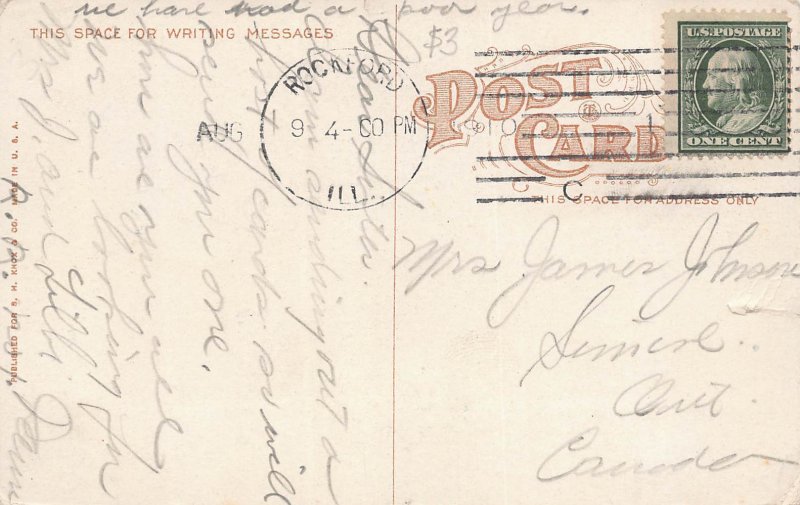 we have had a poor year.
THIS SPACE FOR WRITING MESSAGES
$3
Dear
Am sending out a
post cards so will
send you one.
how are you all
we are looking for
Mrs J. and
PUBLISHED FOR S. H. KNOX & CO. MADE IN U. S. A.
ROCKFORD
AUG 9 4-00 PM 1910
ILL.
C
1
POST CARD
THIS SPACE FOR ADDRESS ONLY
U.S. POSTAGE
ONE CENT
Mrs James Johnson
Ont
Canada